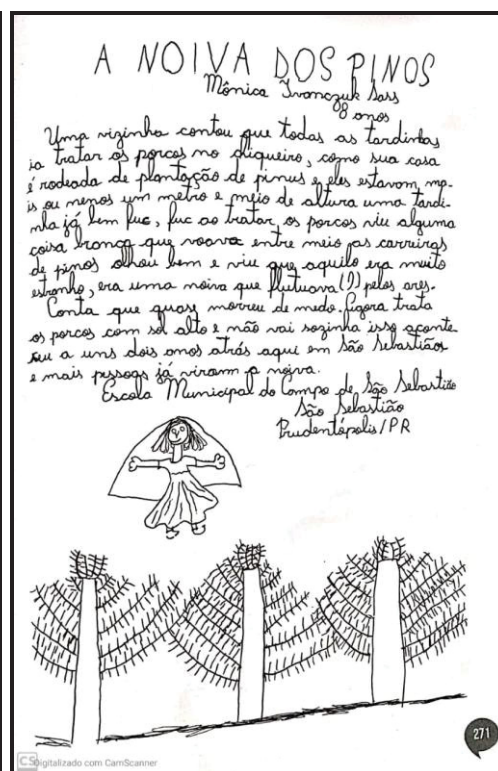 A NOIVA DOS PINOS
Mônica Ivanczuk Sass
8 anos
Uma vizinha contou que todas as tardinhas
ia tratar os porcos no chiqueiro, como sua casa
é rodeada de plantação de pinus e eles estavam ma-
is ou menos um metro e meio de altura uma tardi-
nha já bem fuc, fuc ao tratar os porcos viu alguma
coisa branca que voava entre meio as carreiras
de pinos olhou bem e viu que aquilo era muito
estranho, era uma noiva que flutuava (!) pelos ares.
Conta que quase morreu de medo. Agora trata
os porcos com sol alto e não vai sozinha isso aconte-
ceu a uns dois anos atrás aqui em São Sebastião
e mais pessoas já viram a noiva.
Escola Municipal do Campo de São Sebastião
São Sebastião
Prudentópolis/PR
271
CS Digitalizado com CamScanner